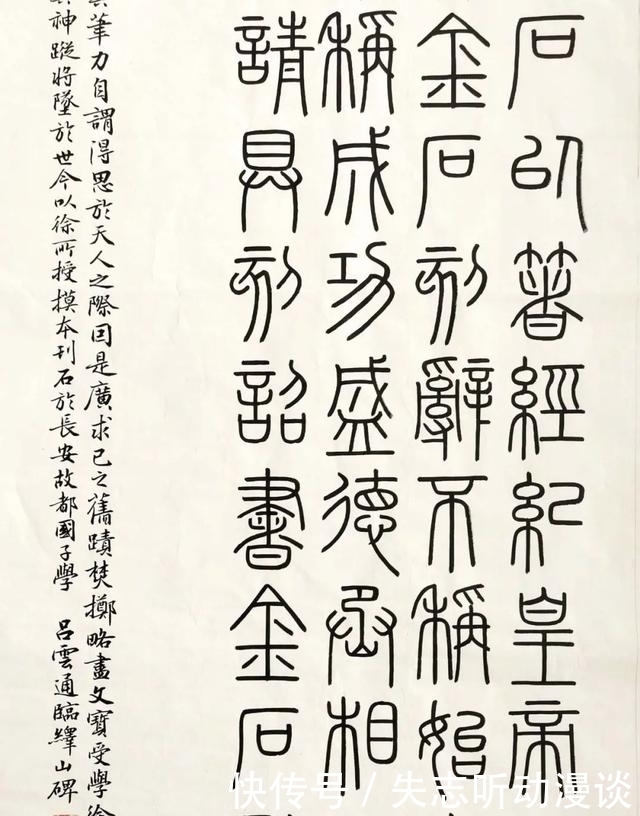 石以著經紀皇帝
金石刻辭不稱始
稱成功盛德丞相
請具刻詔書金石刻
筆力自謂得思於天人之際因是廣求己之舊蹟焚擲略盡文寶受學徐
神蹤將墜於世今以徐所授摸本刊石於長安故都國子學 呂雲通臨繹山碑
快传号 / 失志听动漫谈